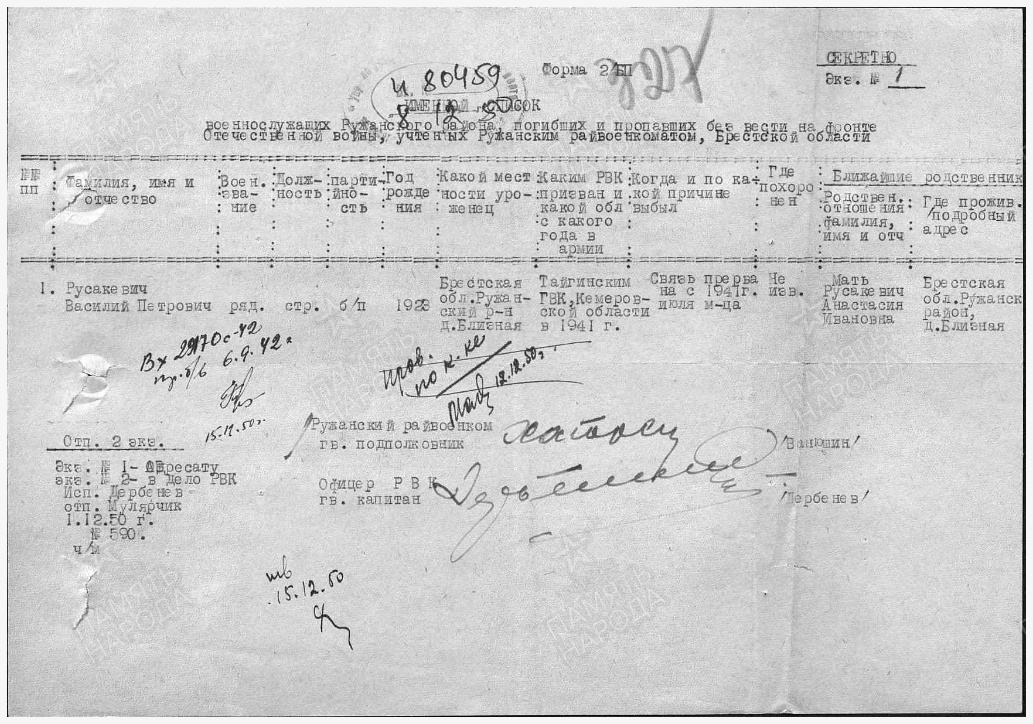 СЕКРЕТНО
Экз. № 1
Форма 2/БП
и 80459
8 12 5
ИМЕННОЙ СПИСОК
военнослужащих Ружанского района, погибших и пропавших без вести на фронте
Отечественной войны, учтенных Ружанским райвоенкоматом, Брестской области
№№ пп
Фамилия, имя и отчество
Воен. зва- ние
Долж- ность
парти- йно- сть
Год рожде ния
Какой мест ности уро- женец
Каким РВК призван и какой обл с какого года в армии
Когда и по ка- кой причине выбыл
Где похоро нен
Ближайшие родственник
Родствен. отношения фамилия, имя и отч
Где прожив. подробный адрес
1. Русакевич
Василий Петрович ряд. стр. б/п 1923
Брестская обл.Ружан- ский р-н д.Близная
Тайгинским ГВК,Кемеров- ской области в 1941 г.
Связь прерва на с 1941г. июля м-ца
Не изв.
Мать Русакевич Анастасия Ивановна
Брестская обл.Ружанск район, д.Близная
Вх 29170с-42
пр.б/б 6.9.42г
15.12.50г
пров.
по к.ке
12.12.50г.
Ружанский райвоенком
гв. подполковник
/Ванюшин/
Офицер РВК
гв. капитан
/Дербенев/
Отп. 2 экз.
Экз. № 1- Адресату
экз. № 2- в Дело РВК
Исп. Дербенев
отп. Мулярчик
1.12.50 г.
№ 590г.
ч/м
15.12.50
ПАМЯТЬ НАРОДА